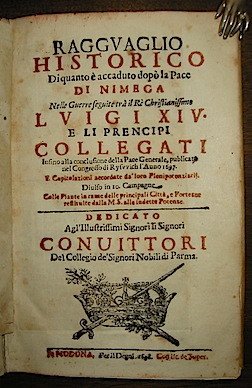 RAGGVAGLIO
HISTORICO
Di quanto è accaduto dopò la Pace
DI NIMEGA
Nelle Guerre seguite trà il Rè Christianissimo
LVIGI XIV.
E LI PRENCIPI
COLLEGATI
Insino alla conclusione della Pace Generale, publicata
nel Congresso di Rysvvich l'Anno 1697.
E Capitolazioni accordate da' loro Plenipotenziarij.
Diuiso in 10. Campagne
Colle Piante in rame delle principali Città, e Fortezze
restituite dalla M.S. alle sudette Potenze.
DEDICATO
Agl'Illustrissimi Signori li Signori
CONUITTORI
Del Collegio de' Signori Nobili di Parma.
In MODONA, Per il Degni. 1698. Con lic. de' Super.